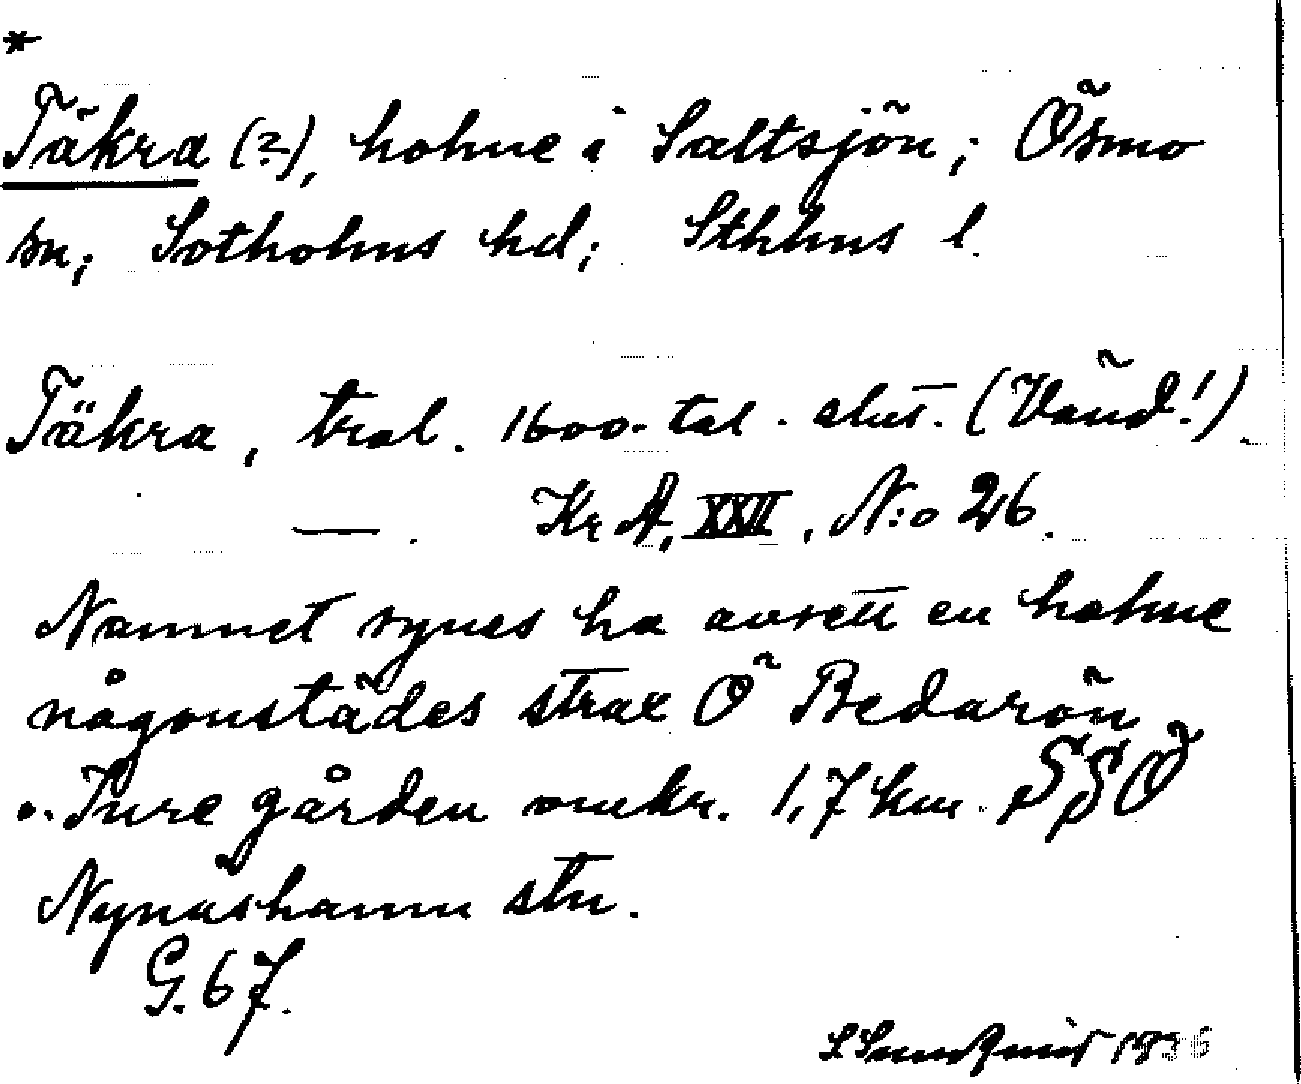 *
Täkra (?), holme i Saltsjön; Ösmo
sn; Sotholms hd; Sthlms l.
Täkra, tral. 1600-tal. slut. (Vänd!).
—. KrA, XXII, N:o 26.
Namnet synes ha avsett en holme
någonstädes strax Ö Bedarön
Ture gården omkr. 1,7 km SSÖ
Nynäshamn stn.
G. 67.
1936